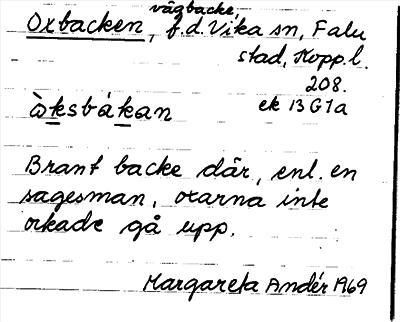 vägbacke,
Oxbacken, f.d. Vika sn, Falu
stad, Kopp.l.
208.
ek 13 G 1a
àksbákan
Brant backe där, enl. en
sagesman, oxarna inte
orkade gå upp.
Margareta Andér 1969